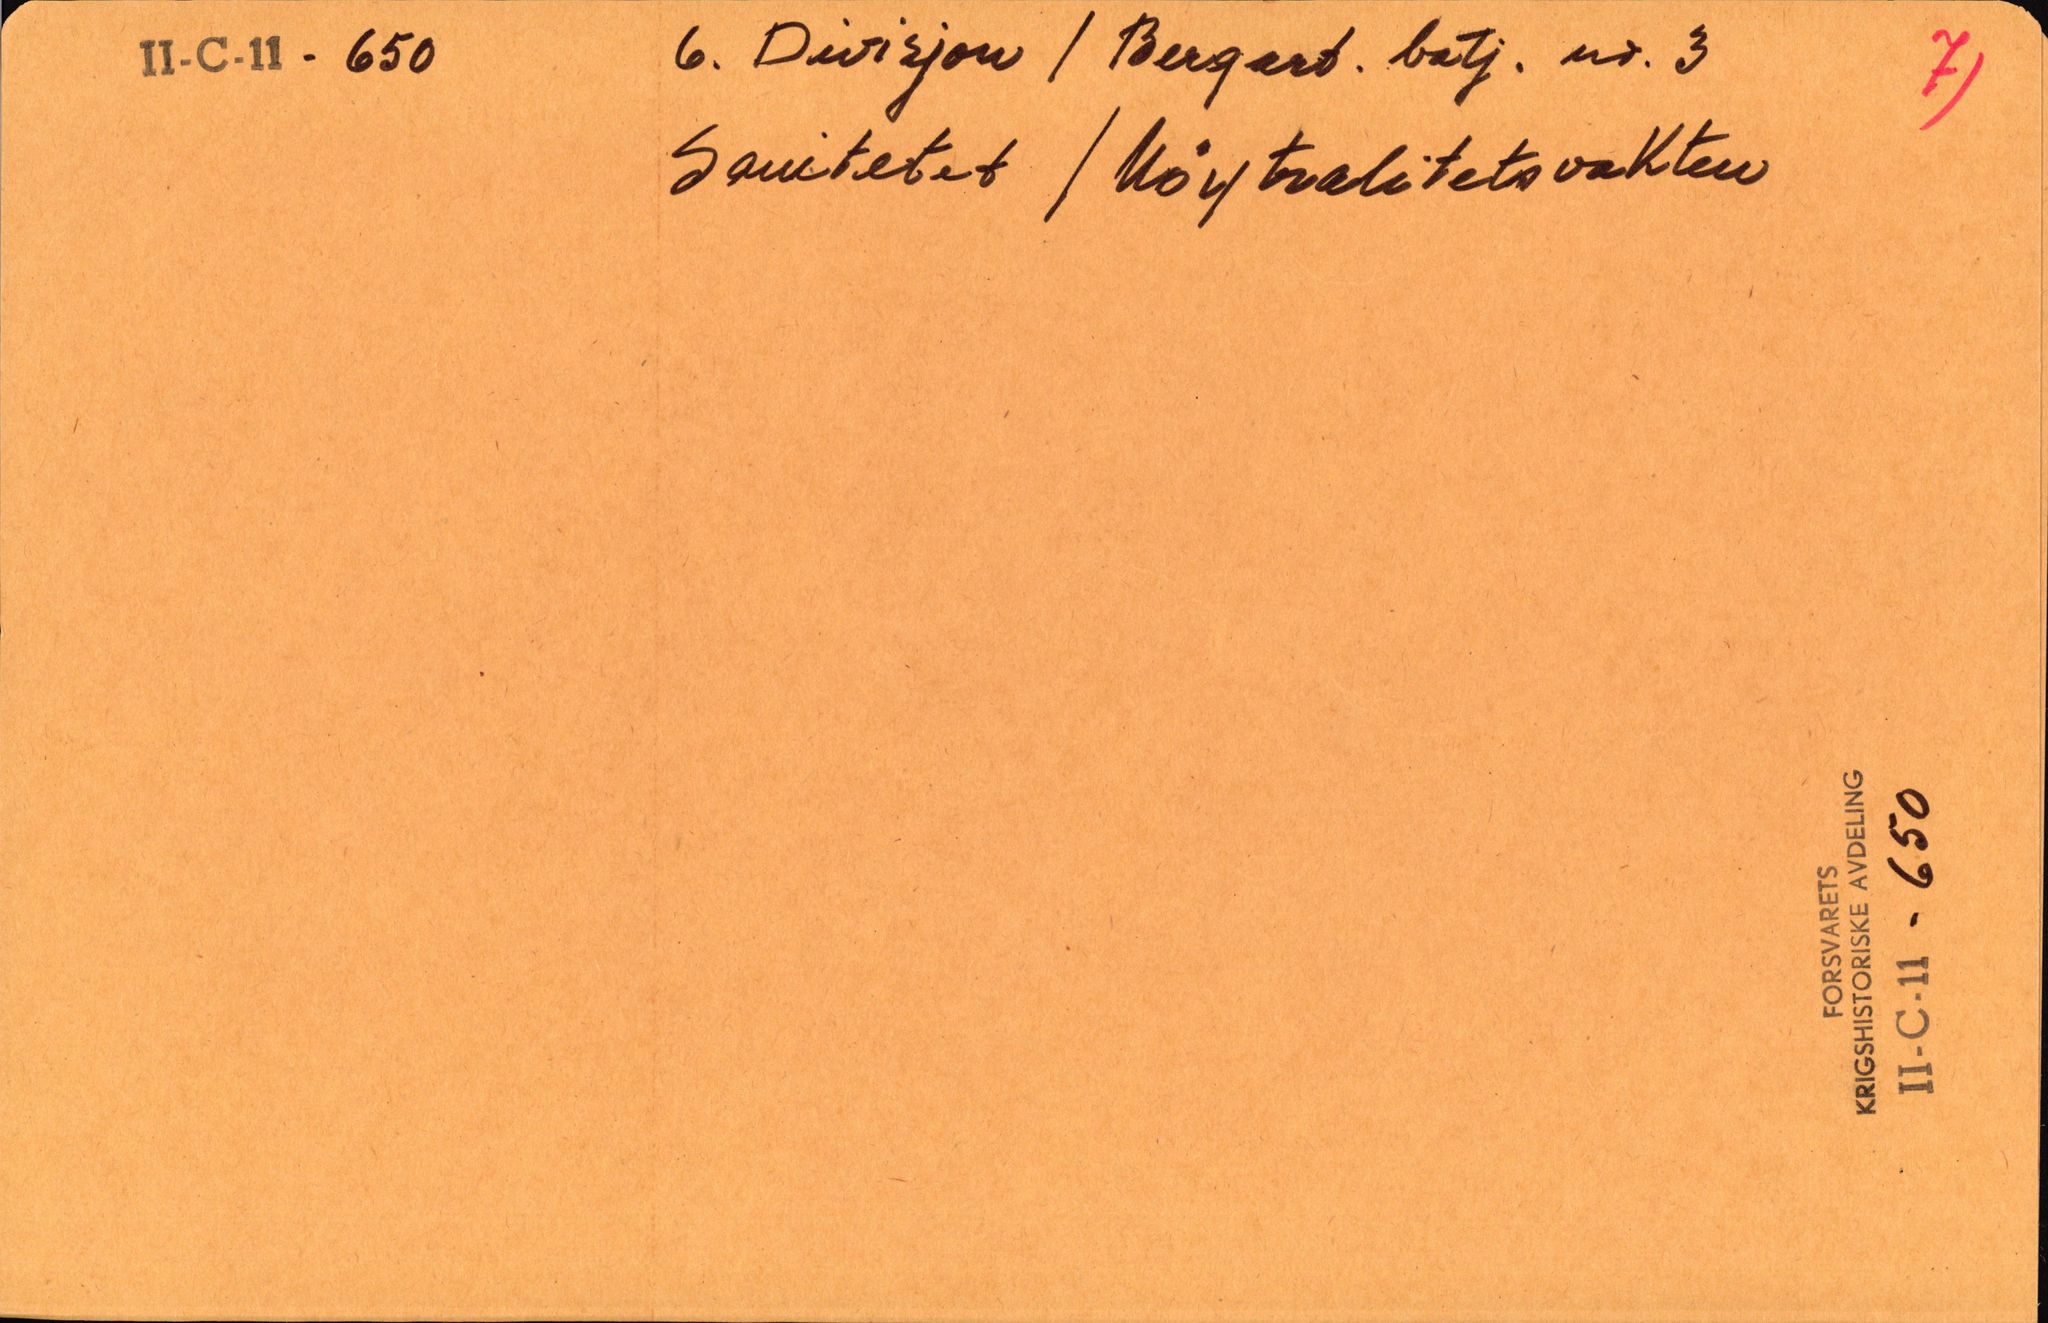 II-C-11 - 650
6. Divisjon / Bergart. batj. nr. 3
7)
Sanitetet / Nöytralitetsvakten
FORSVARETS
KRIGSHISTORISKE AVDELING
II-C-11 - 650